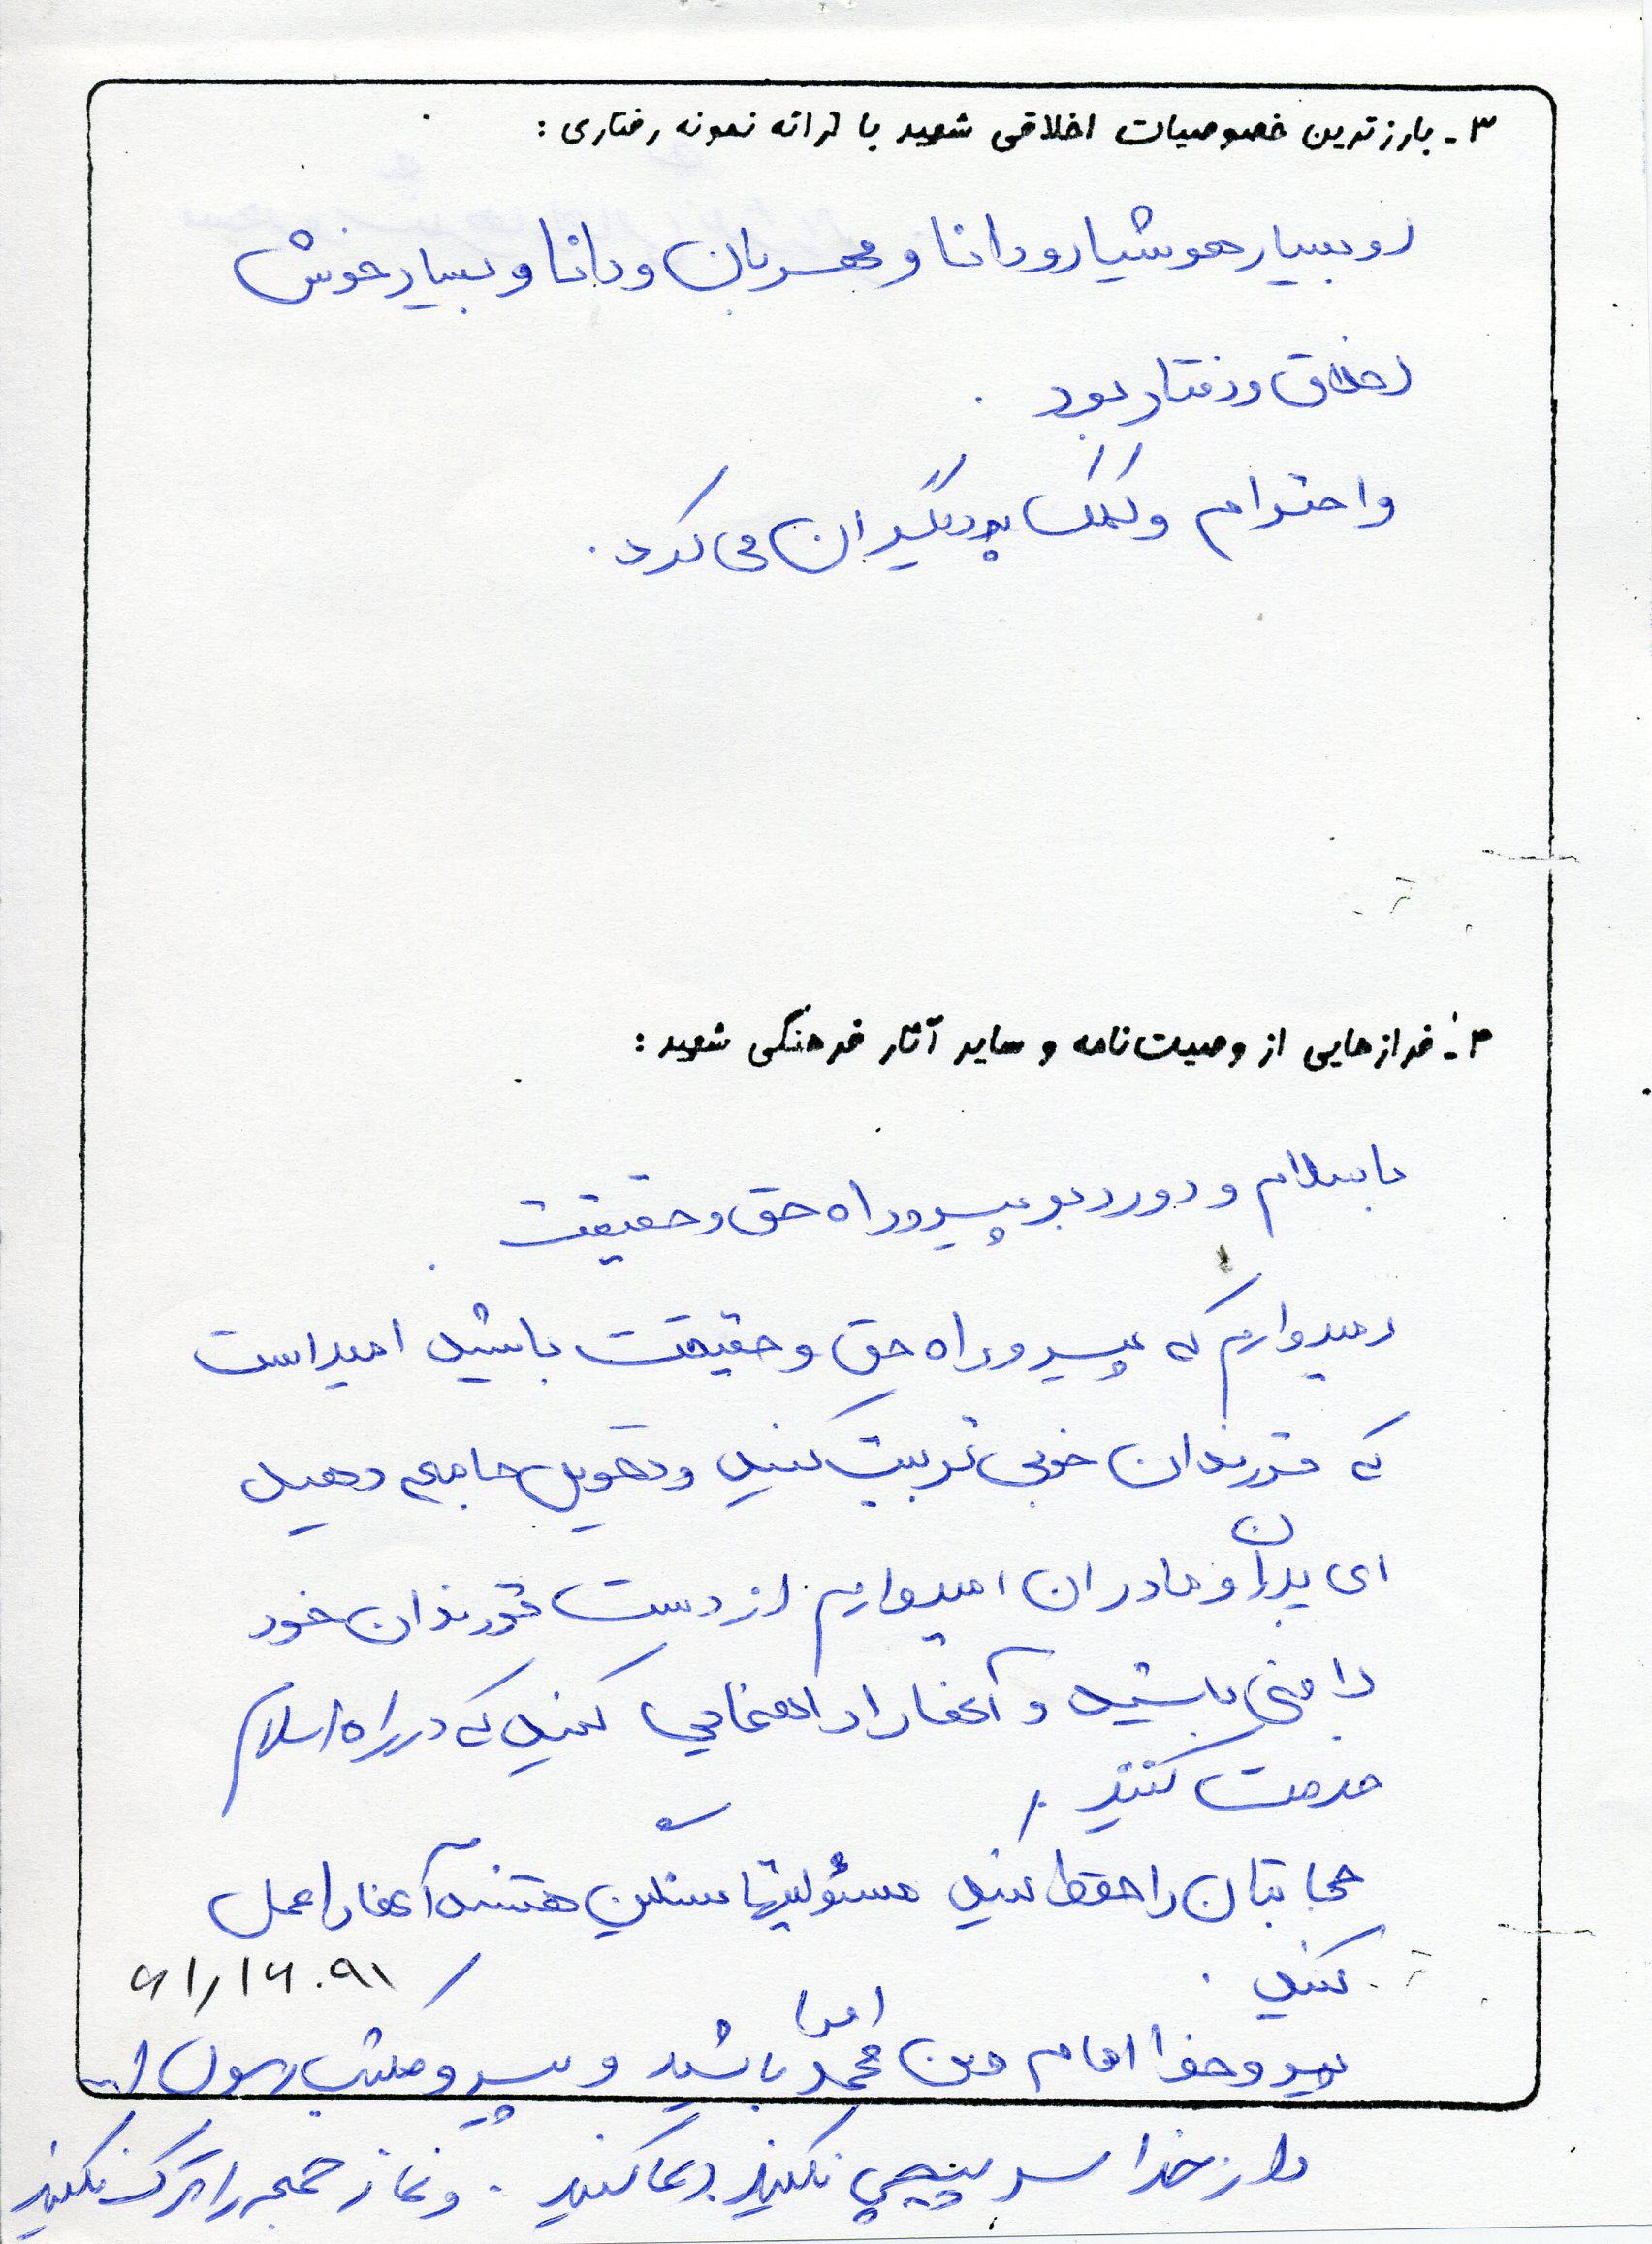 ۳ـ بارزترین خصوصیات اخلاقی شهید با ارائه نمونه رفتاری:
او بسیار هوشیار و دانا و مهربان و دانا و بسیار خوش
اخلاق و رفتار بود.
و احترام و کمک به دیگران می کرد.
۴ـ فرازهایی از وصیت‌نامه و سایر آثار فرهنگی شهید:
با سلام و دورد بر پیرو راه حق و حقیقت
امیدوارم که پیرو راه حق و حقیقت باشید امید است
که فرزندان خوبی تربیت کنید و تحویل جامعه دهید
ای پدران و مادران امیدوارم از دست فرزندان خود
راضی باشید و آنها را راهنمایی کنید که در راه اسلام
خدمت کنند.
حجابتان را حفظ کنید مسئولیتها سنگین هستند آنها را عمل
کنید.
۶۱/۱۶۰۹۱
پیرو امام دین محمد باشید و پیرو مکتب رسول ا...
از خدا سرپیچی نکنید دعا کنید. و نماز جمعه را ترک نکنید